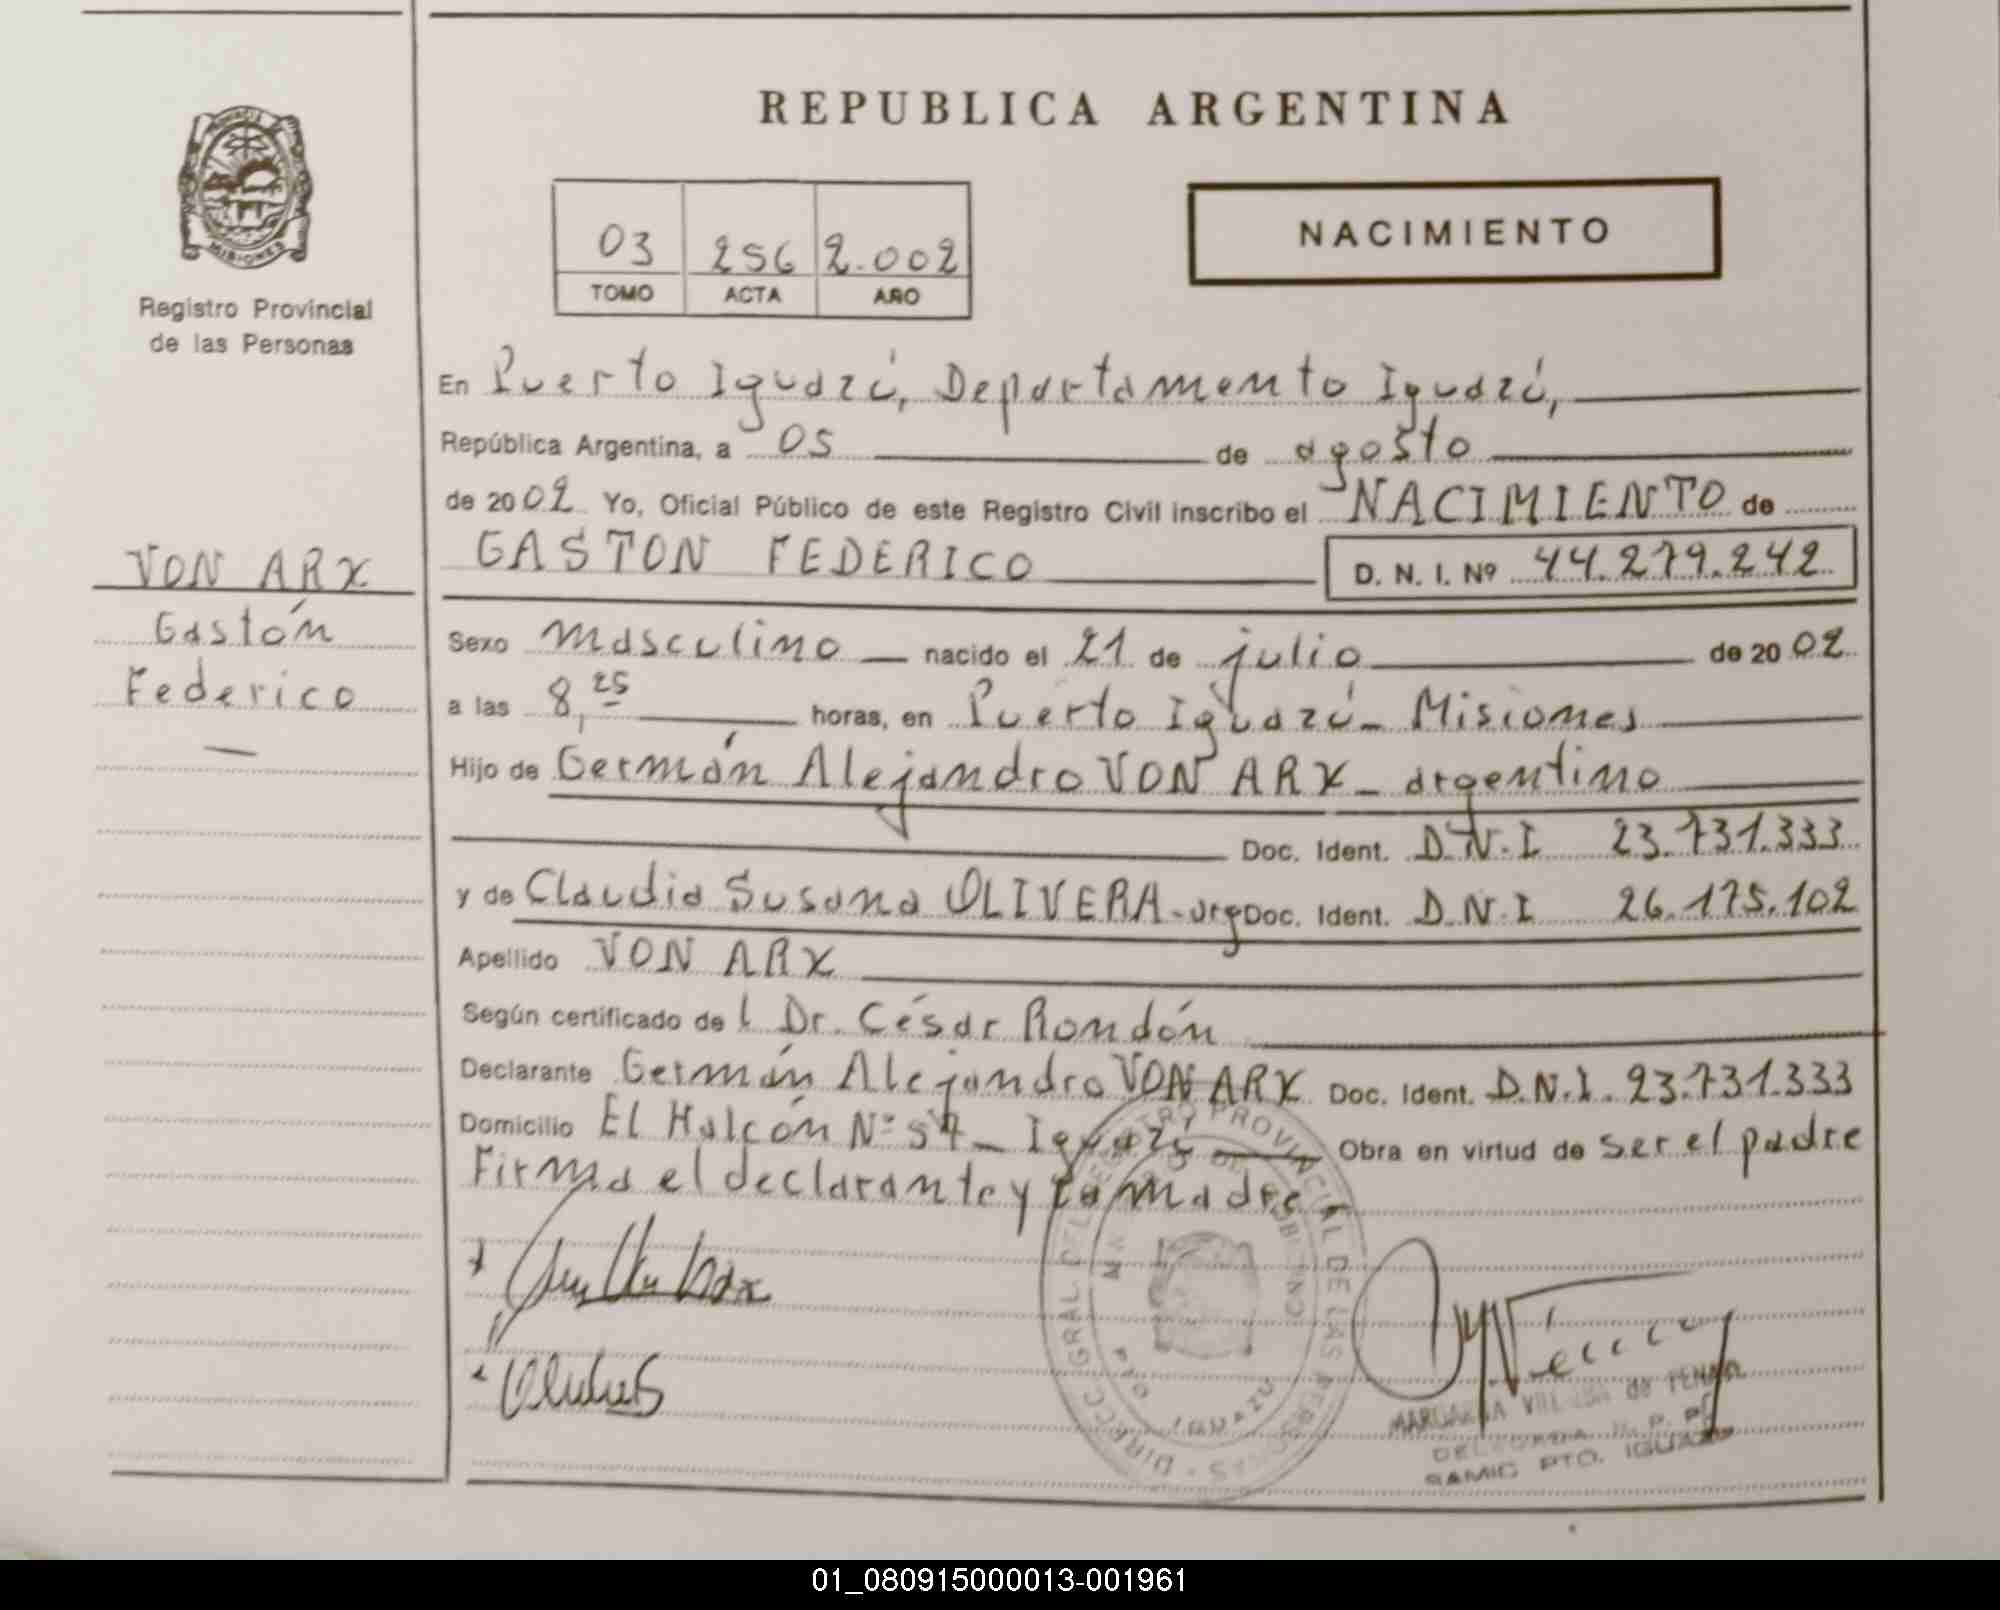 REPUBLICA ARGENTINA
PROVINCIA DE
MISIONES
Registro Provincial
de las Personas
03 256 2.002
TOMO ACTA AÑO
NACIMIENTO
En Puerto Iguazú, Departamento Iguazú,
República Argentina, a 05 de agosto
de 2002 Yo, Oficial Público de este Registro Civil inscribo el NACIMIENTO de
GASTON FEDERICO D. N. I. Nº 44.279.242
VON ARX
Gastón
Federico
Sexo Masculino nacido el 21 de julio de 2002
a las 8,25 horas, en Puerto Iguazú - Misiones
Hijo de Germán Alejandro VON ARX - argentino
Doc. Ident. D.N.I 23.731.333
y de Claudia Susana OLIVERA - arg Doc. Ident. D.N.I 26.175.102
Apellido VON ARX
Según certificado del Dr. César Rondón
Declarante Germán Alejandro VON ARX Doc. Ident. D.N.I. 23.731.333
Domicilio El Halcón Nº 57 - Iguazú Obra en virtud de ser el padre
Firma el declarante y la madre
DIRECC. GRAL. DEL REGISTRO PROVINCIAL DE LAS PERSONAS
IGUAZU
MARGARITA de
DELEGADA R. P. P.
SAMIC PTO. IGUAZU
01_080915000013-001961